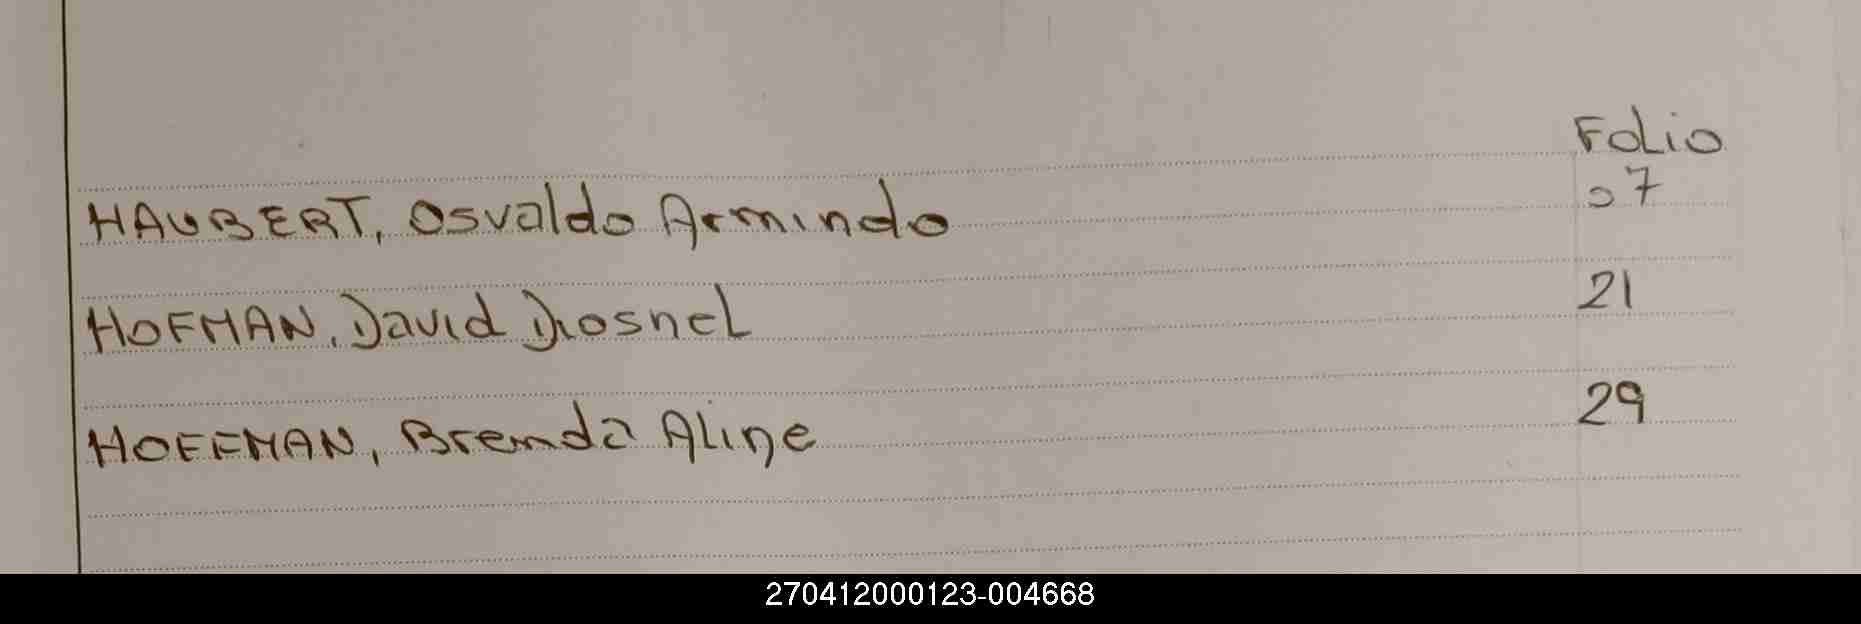 Folio
HAUBERT, Osvaldo Armindo 07
HOFMAN, David Diosnel 21
HOFFMAN, Brenda Aline 29
270412000123-004668